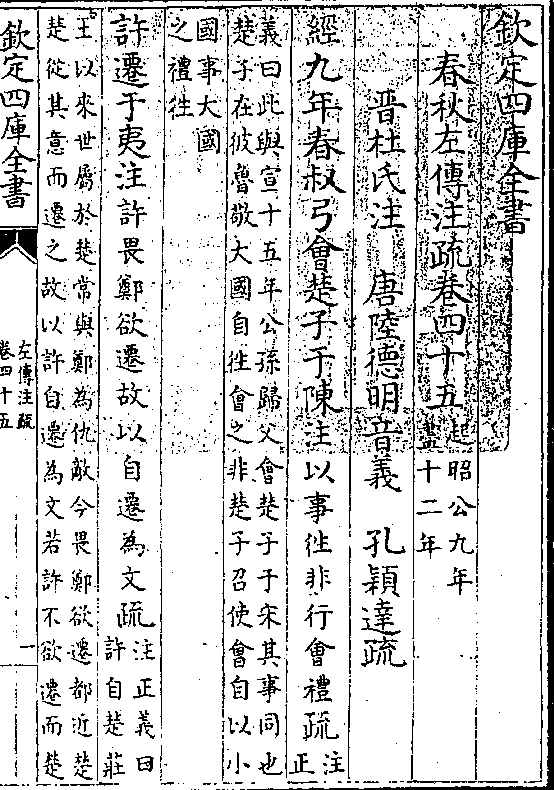 欽定四庫全書
春秋左傳注疏卷四十五 起昭公九年
盡十二年
晋杜氏注 唐陸德明音義 孔穎達疏
經九年春叔弓會楚子于陳注以事徃非行會禮疏 注
正
義曰此與宣十五年公孫歸父會楚子于宋其事同也
楚子在彼魯敬大國自徃會之非楚子召使會自以小
國事大國
之禮徃
許遷于夷注許畏鄭欲遷故以自遷為文疏 注正義曰
許自楚莊
王以來世屬於楚常與鄭為仇敵今畏鄭欲遷都近楚
楚從其意而遷之故以許自遷為文若許不欲遷而楚
欽定四庫全書
左傳注疏
卷四十五
一